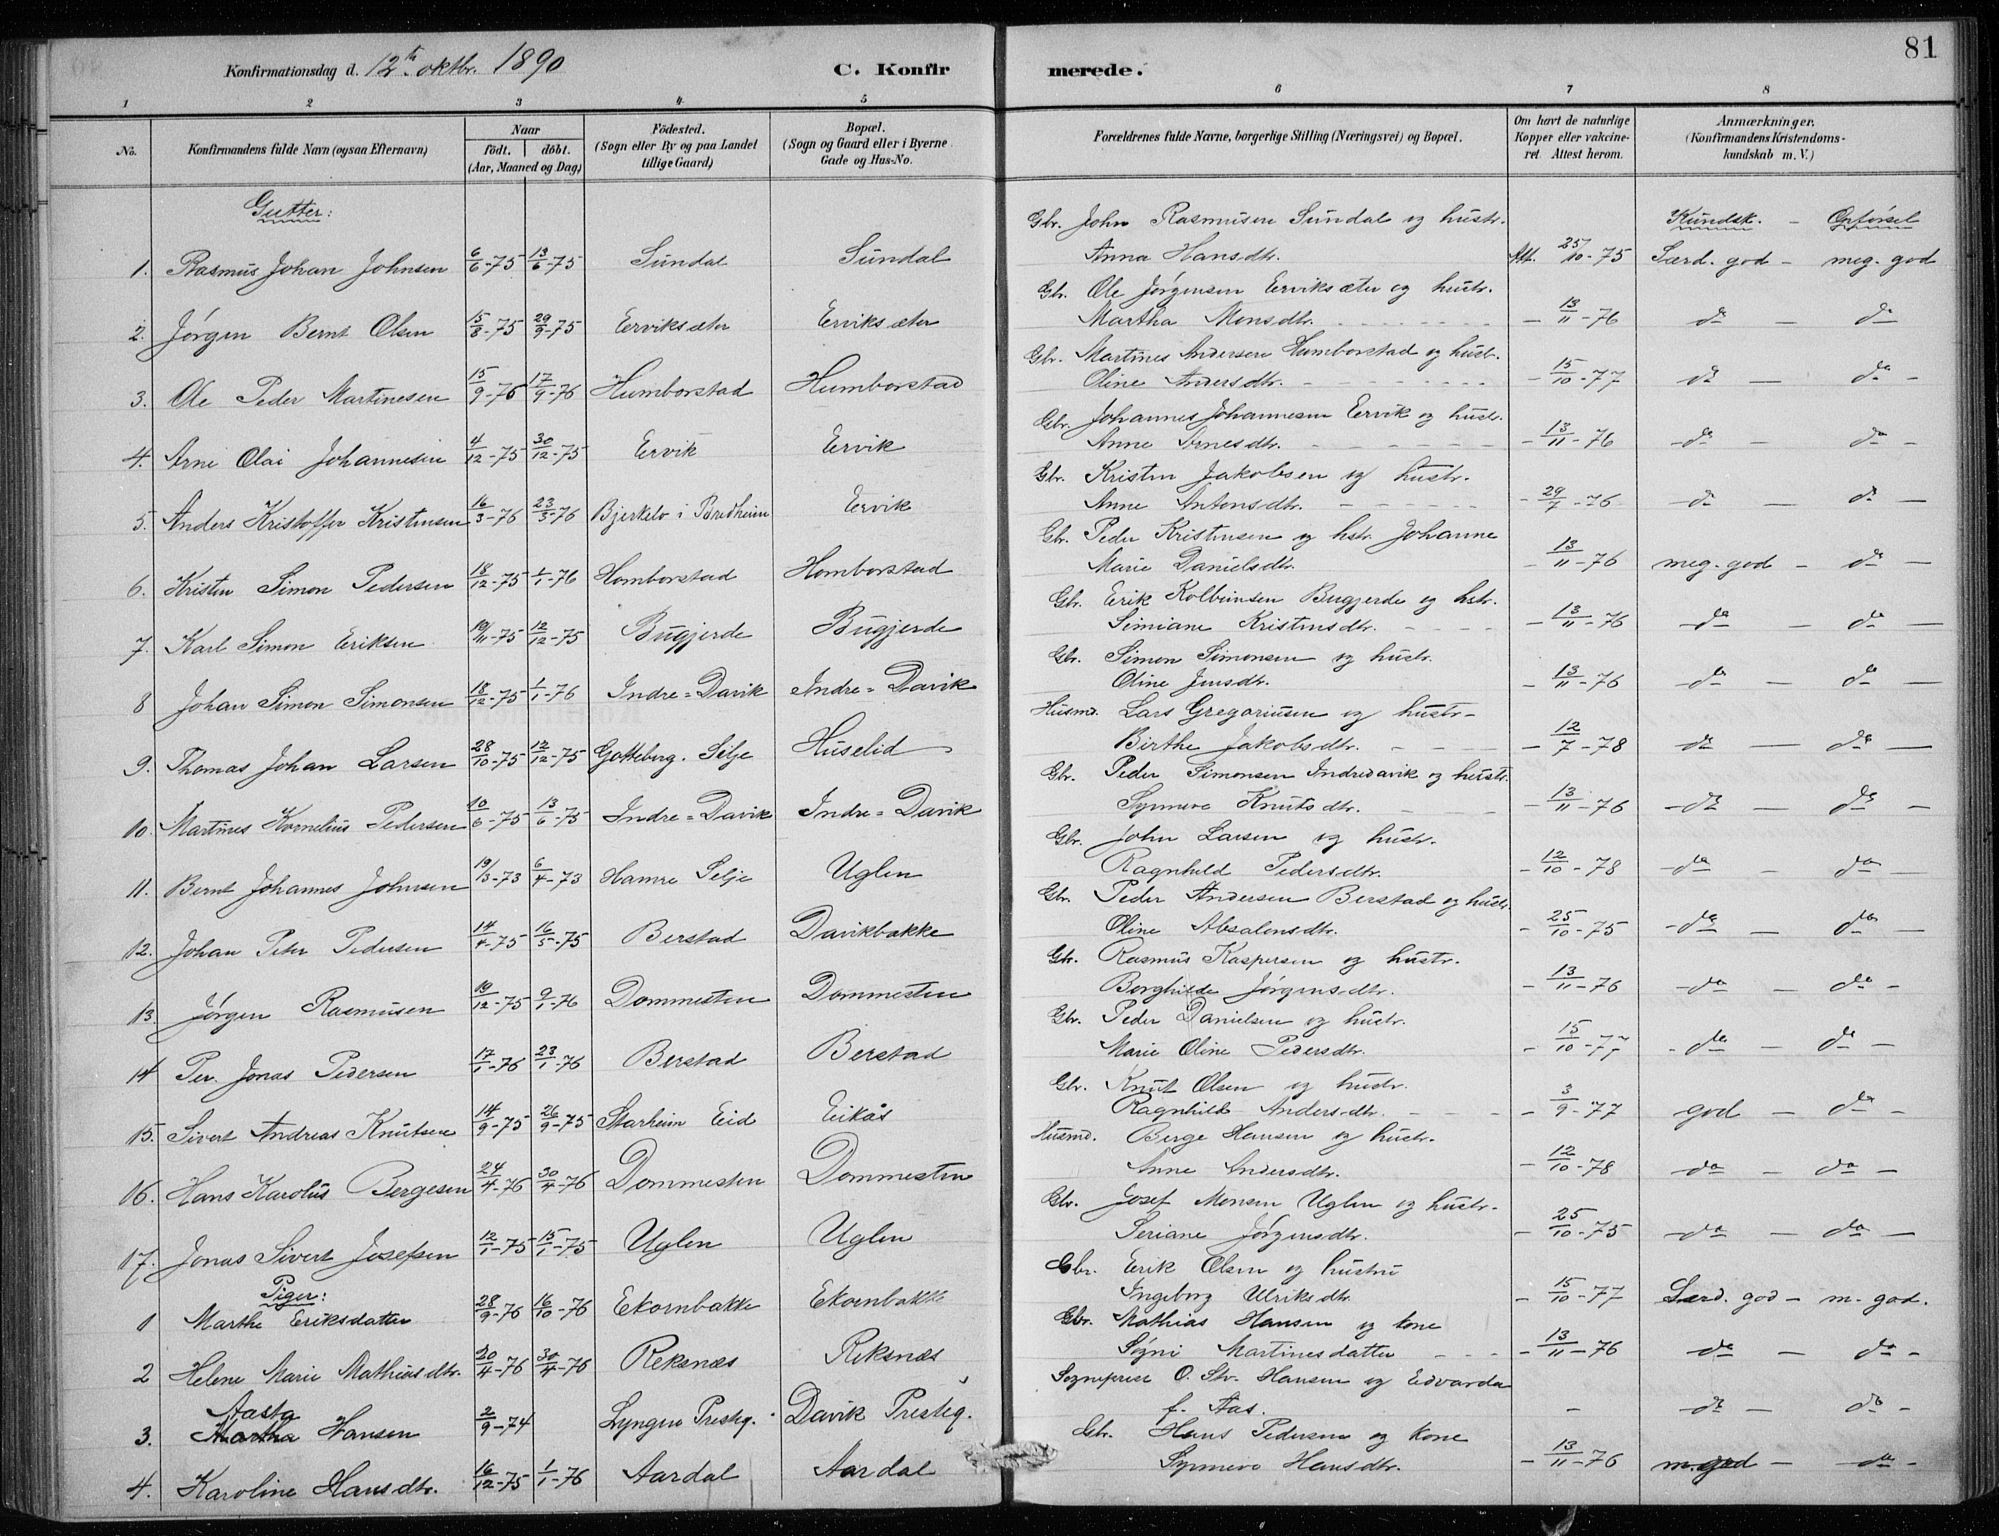 81
Konfirmationsdag d. 12te oktbr. 1890 C. Konfirmerede.
1 2 3 4 5 6 7 8
No. Konfirmandens fulde Navn (ogsaa Efternavn) Naar födt. döbt. (Aar, Maaned og Dag) Födested. (Sogn eller By og paa Landet tillige Gaard) Bopæl. (Sogn og Gaard eller i Byerne Gade og Hus-No. Forældrenes fulde Navne, borgerlige Stilling (Næringsvei) og Bopæl. Om havt de naturlige Kopper eller vakcineret. Attest herom. Anmærkninger. (Konfirmandens Kristendomskundskab m. V.)
Gutter: Kundsk. - Opförsel
1. Rasmus Johan Johnsen 6/6-75 13/6-75 Sundal Sundal Gbr. John Rasmusen Sundal og hustr. Anna Hansdtr. Att. 25/10-75 Særd. god - meg. god
2. Jørgen Bernt Olsen 15/8-75 29/9-75 Erviksæter Erviksæter Gbr. Ole Jørgensen Erviksæter og hustr. Martha Monsdtr. - 13/11-76 do - do
3. Ole Peder Martinesen 15/9-76 17/9-76 Humborstad Humborstad Gbr. Martines Andersen Humborstad og hustr. Oline Andersdtr. - 15/10-77 do - do -
4. Arne Olai Johannesen 4/12-75 30/12-75 Ervik Ervik Gbr. Johannes Johannesen Ervik og hustr. Anne Arnesdtr. - 13/11-76 - do - do -
5. Anders Kristoffer Kristensen 16/3-76 23/3-76 Bjerkelo i Bredheim Ervik Gbr. Kristen Jakobsen og hustr. Anne Antonsdtr. - 29/7-76 - do - do -
6. Kristen Simon Pedersen 18/12-75 1/1-76 Homborstad Homborstad Gbr. Peder Kristensen og hstr. Johanne Marie Danielsdtr. - 13/11-76 meg. god - do -
7. Karl Simon Eriksen 19/11-75 12/12-75 Bugjerde Bugjerde Gbr. Erik Kolbeinsen Bugjerde og hstr. Simiane Kristensdtr. - 13/11-76 - do - do -
8 Johan Simon Simonsen 18/12-75 1/1-76 Indre=Davik Indre=Davik Gbr. Simon Simonsen og hustr. Oline Jensdtr. - 13/11-76 - do - do -
9. Thomas Johan Larsen 28/10-75 12/12-75 Gotteberg. Selje Huselid Husmd. Lars Gregoriusen og hustr- Birthe Jakobsdtr. - 12/7-78 - do - do -
10. Martines Kornelius Pedersen 10/6-75 13/6-75 Indre=Davik Indre=Davik Gbr. Peder Simonsen Indredavik og hustr. Synneve Knutsdtr. - 13/11-76 - do - do -
11. Bernt Johannes Johnsen 19/3-73 6/4-73 Hamre Selje Uglen Gbr. John Larsen og hustr. Ragnhild Pedersdtr. - 12/10-78 - do - do -
12. Johan Peter Pedersen 14/4-75 16/5-75 Berstad Davikbakke Gbr. Peder Andersen Berstad og hustr. Oline Absalonsdtr. - 25/10-75 - do - do -
13. Jørgen Rasmusen 19/12-75 9/1-76 Dommesten Dommesten Gbr. Rasmus Kaspersen og hustr. Borghilde Jørgensdtr. - 13/11-76 - do - do -
14 Per. Jonas Pedersen 17/1-76 23/1-76 Berstad Berstad Gbr. Peder Danielsen og hustr. Marie Oline Pedersdtr. - 15/10-77 - do - do -
15. Sivert Andreas Knutsen 14/9-75 26/9-75 Starheim Eid Eikås Gbr. Knut Olsen og hustr. Ragnhild Andersdtr. - 3/9-77 god - do -
16. Hans Karolus Bergesen 24/4-76 30/4-76 Dommesten Dommesten Husmd. Berge Hansen og hustr. Anne Andersdtr. - 12/10-78 - do - do -
17. Jonas Sivert Josefsen 12/1-75 15/1-75 Uglen Uglen Gbr. Josef Monsen Uglen og hustr. Seriane Jørgensdtr. - 25/10-75 - do - do -
Piger:
1 Marthe Eriksdatter 28/9-76 16/10-76 Ekornbakke Ekornbakke Gbr. Erik Olsen og hustru Ingeborg Ulriksdtr. - 15/10-77 Særd. god - m. god.
2 Helene Marie Mathiasdtr. 20/4-76 30/4-76 Reksnæs Reksnæs Gbr. Mathias Hansen og kone Søgni Martinesdatter - 13/11-76 do - do -
3. Aasta Hansen 2/9-74 Lyngen Presteg. Davik Presteg. Sogneprest O. Hansen og Edvarda f. Aas. - do - do -
4. Karoline Hansdtr. 16/12-75 1/1-76 Aardal Aardal Gbr. Hans Pedersen og kone Synneve Hansdtr. - 13/11-76 m. god - do -